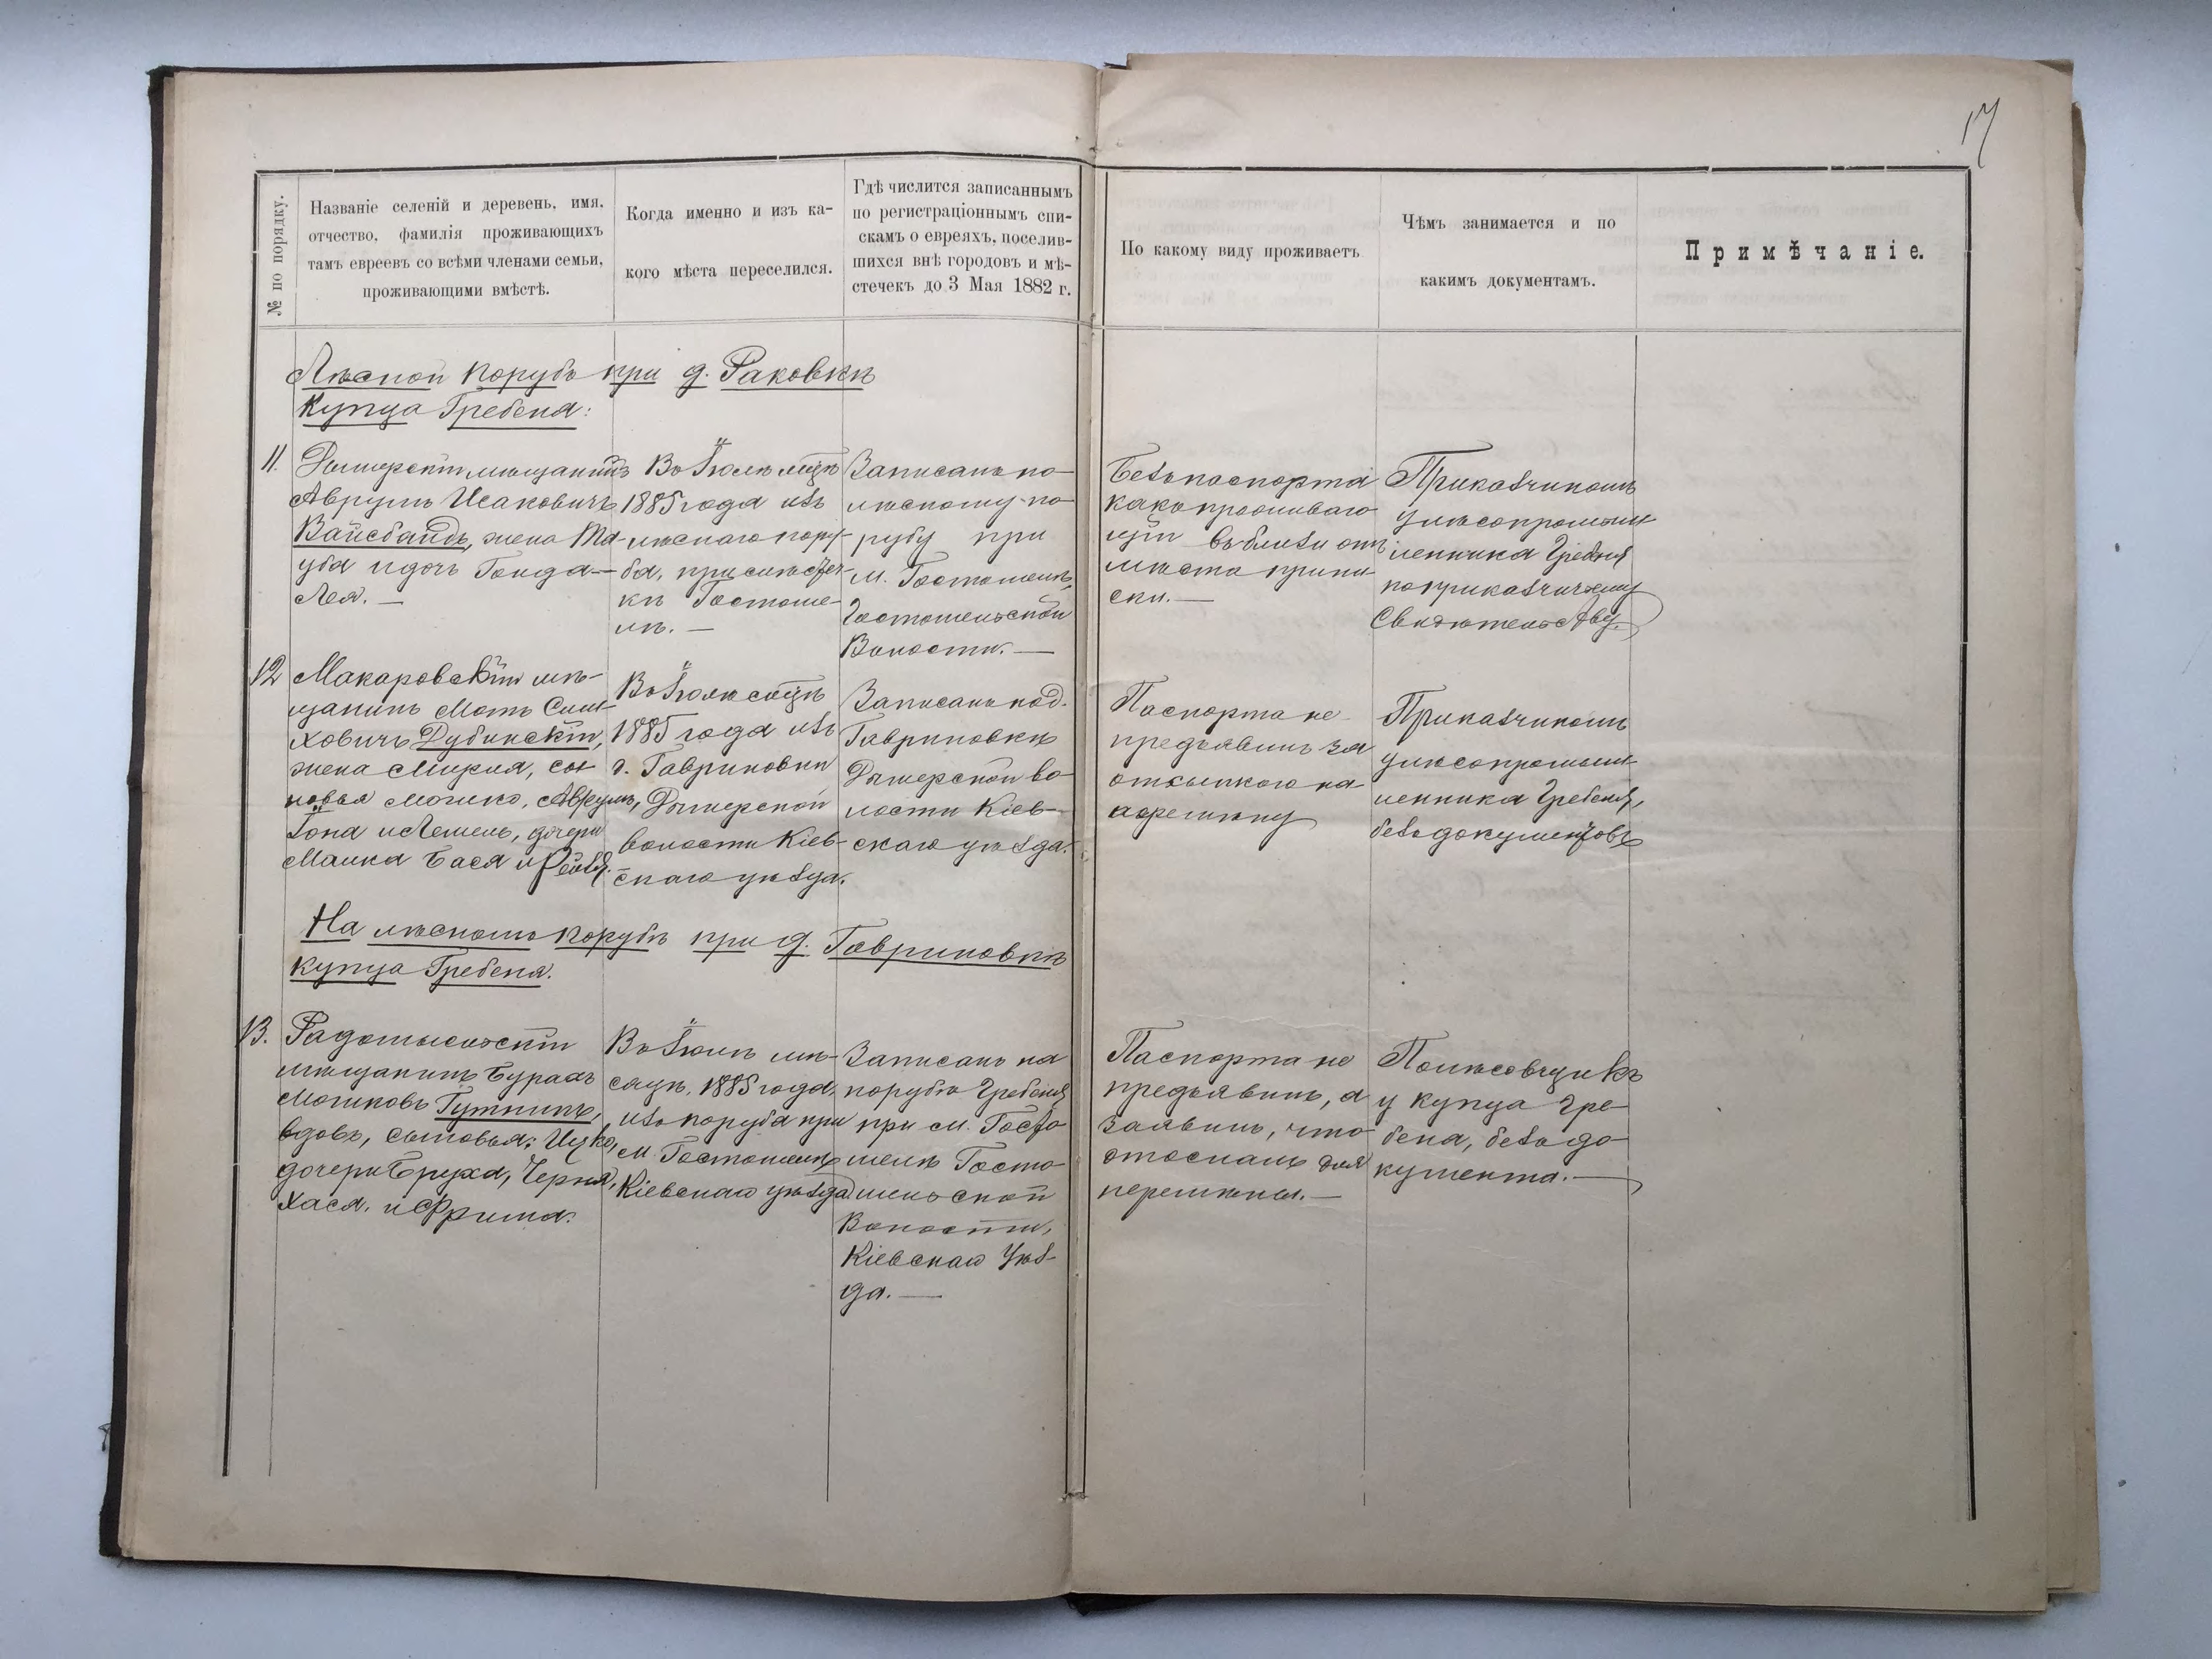 17
№ по порядку.
Названіе селеній и деревень, имя,
отчество, фамилія проживающихъ
тамъ евреевъ со всѣми членами семьи,
проживающими вмѣстѣ.
Когда именно и изъ ка-
кого мѣста переселился.
Гдѣ числится записаннымъ
по регистраціоннымъ спи-
скамъ о евреяхъ, поселив-
шихся внѣ городовъ и мѣ-
стечекъ до 3 Мая 1882 г.
По какому виду проживаетъ
Чѣмъ занимается и по
какимъ документамъ.
Примѣчаніе.
Лѣсной порубъ при д. Раковкѣ
Купца Гребеня:
11.
Дымерскій мѣщанинъ
Аврумъ Исаковичъ
Вайсбандъ, жена Та-
уба и дочь Гонда-
Лея. —
Въ Іюлѣ мѣцѣ
1885 года изъ
лѣснаго пору-
ба, при
Гостоме-
лѣ. —
Записанъ по
лѣсному по-
рубу при
м. Гостомелѣ,
Гостомельской
Волости. —
Безъ паспорта
какъ проживаю
щій въ близи отъ
мѣста припи
ски. —
Прикащикомъ
у лѣсопромыш
ленника Гребня
по прикащичьему
Свидѣтельству.
12
Макаровскій мѣ-
щанинъ Моть Сим-
ховичъ Дубинскій,
жена Мирля, сы-
новья Мошко, Аврумъ,
Іона и Лемель, дочери
Малка Бася и Рейзя.
Въ Іюлѣ сѧцѣ
1885 года изъ
д. Гавриловки
Дымерской
волости Кіев-
скаго уѣзда.
Записанъ по д.
Гавриловкѣ
Дымерской во-
лости Кіев-
скаго уѣзда.
Паспорта не
предъявилъ за
отсылкою на
перемѣну
Прикащикомъ
у лѣсопромыш-
ленника Гребеня,
безъ документовъ
На лѣсномъ порубѣ при д. Гавриловкѣ
купца Гребеня.
13.
Радомысльскій
мѣщанинъ Бурахъ
Мошковъ Гутникъ,
вдовъ, сыновья: Ицко,
дочери Бруха, Черня,
Хася, и Фрима.
Въ Іюлѣ мѣ-
сяцѣ 1885 года,
изъ поруба при
м. Гостомелѣ
Кіевскаго уѣзда
Записанъ на
порубѣ Гребеня
при м. Госто
мелѣ Госто-
мельской
Волости,
Кіевскаго Уѣз-
да. —
Паспорта не
предъявилъ, а
заявилъ, что
отослалъ для
перемѣны. —
Полѣсовщикъ
у купца Гре-
беня, безъ до
кумента. —